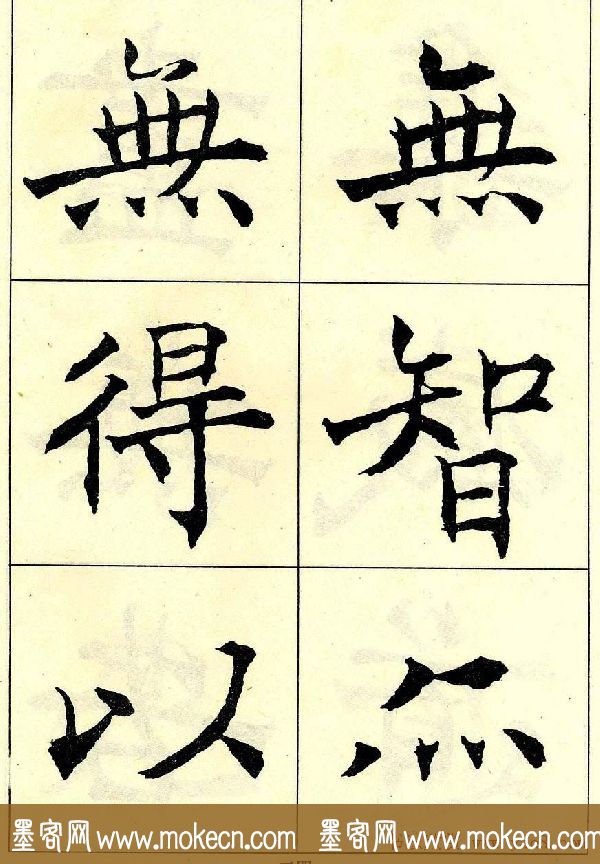 無智亦
無得以
墨客网 www.mokecn.com 墨客网 www.mokecn.com